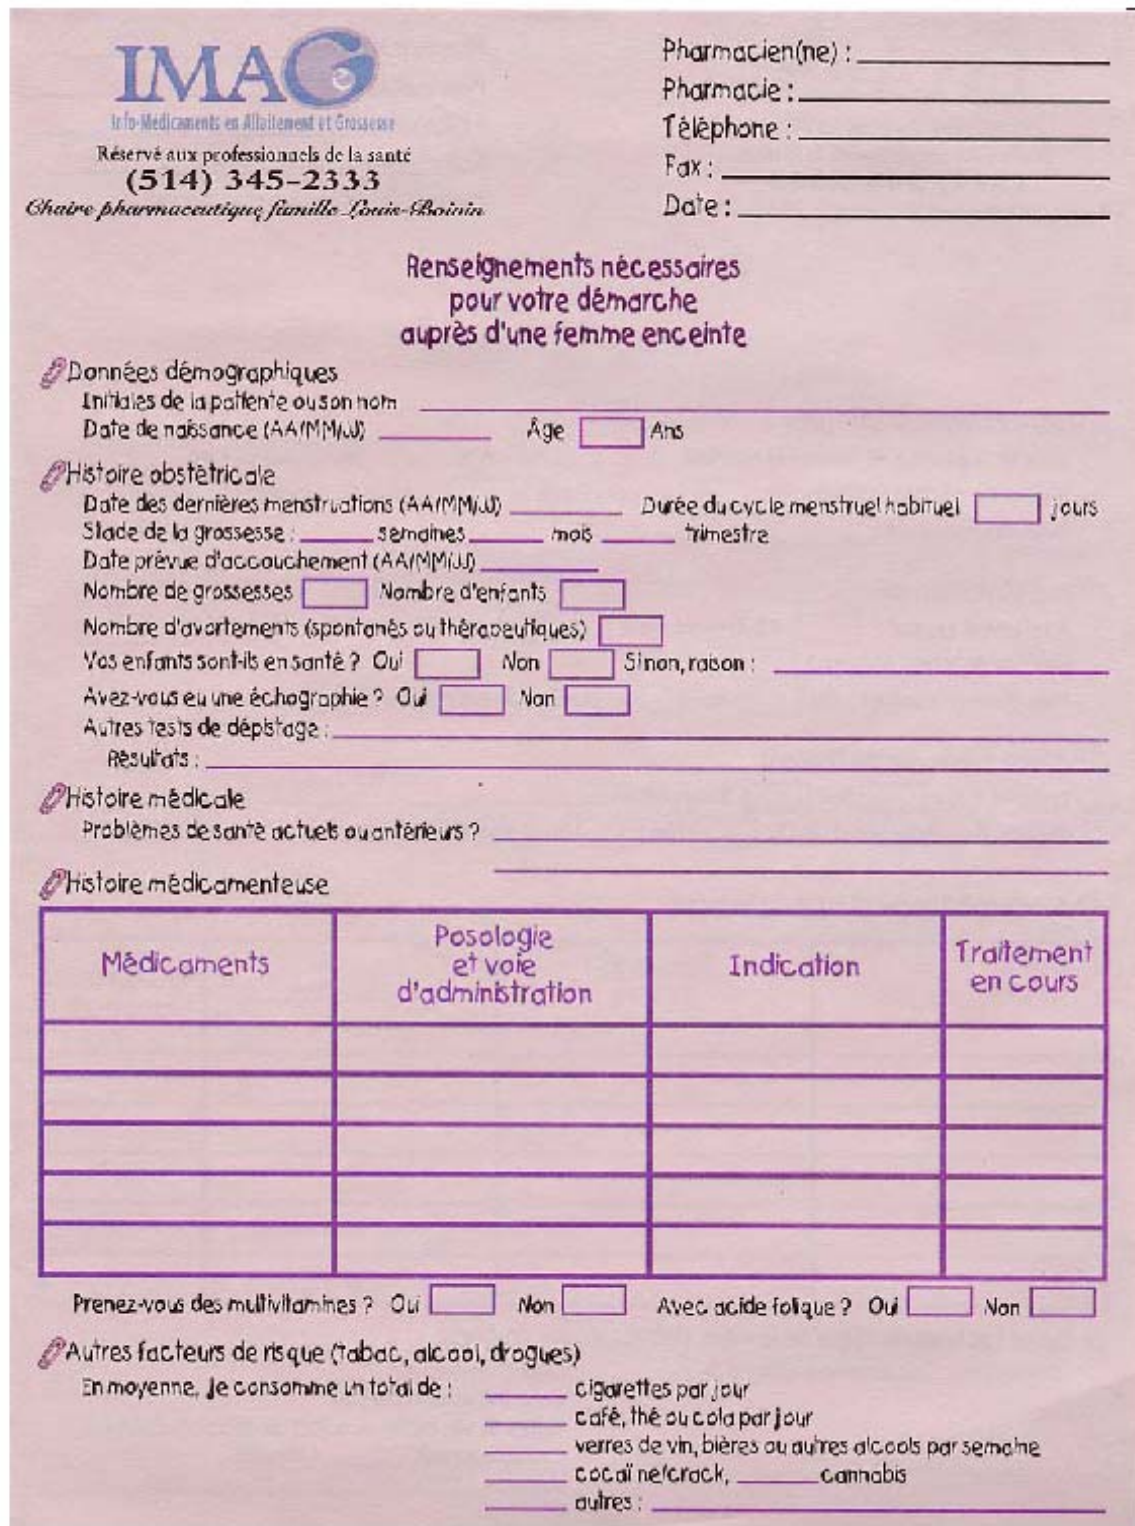 IMAGe
Info-Médicaments en Allaitement et Grossesse
Réservé aux professionnels de la santé
(514) 345-2333
Chaire pharmaceutique famille Louis-Boivin
Pharmacien(ne) :
Pharmacie :
Téléphone :
Fax :
Date :
Renseignements nécessaires
pour votre démarche
auprès d'une femme enceinte
Données démographiques
Initiales de la patiente ou son nom
Date de naissance (AA/MM/JJ) Âge Ans
Histoire obstétricale
Date des dernières menstruations (AA/MM/JJ) Durée du cycle menstruel habituel jours
Stade de la grossesse : semaines mois trimestre
Date prévue d'accouchement (AA/MM/JJ)
Nombre de grossesses Nombre d'enfants
Nombre d'avortements (spontanés ou thérapeutiques)
Vos enfants sont-ils en santé ? Oui Non Si non, raison :
Avez-vous eu une échographie ? Oui Non
Autres tests de dépistage :
Résultats :
Histoire médicale
Problèmes de santé actuels ou antérieurs ?
Histoire médicamenteuse
Médicaments Posologie et voie d'administration Indication Traitement en cours
Prenez-vous des multivitamines ? Oui Non Avec acide folique ? Oui Non
Autres facteurs de risque (tabac, alcool, drogues)
En moyenne, je consomme un total de : cigarettes par jour
café, thé ou cola par jour
verres de vin, bières ou autres alcools par semaine
cocaïne/crack, cannabis
autres :